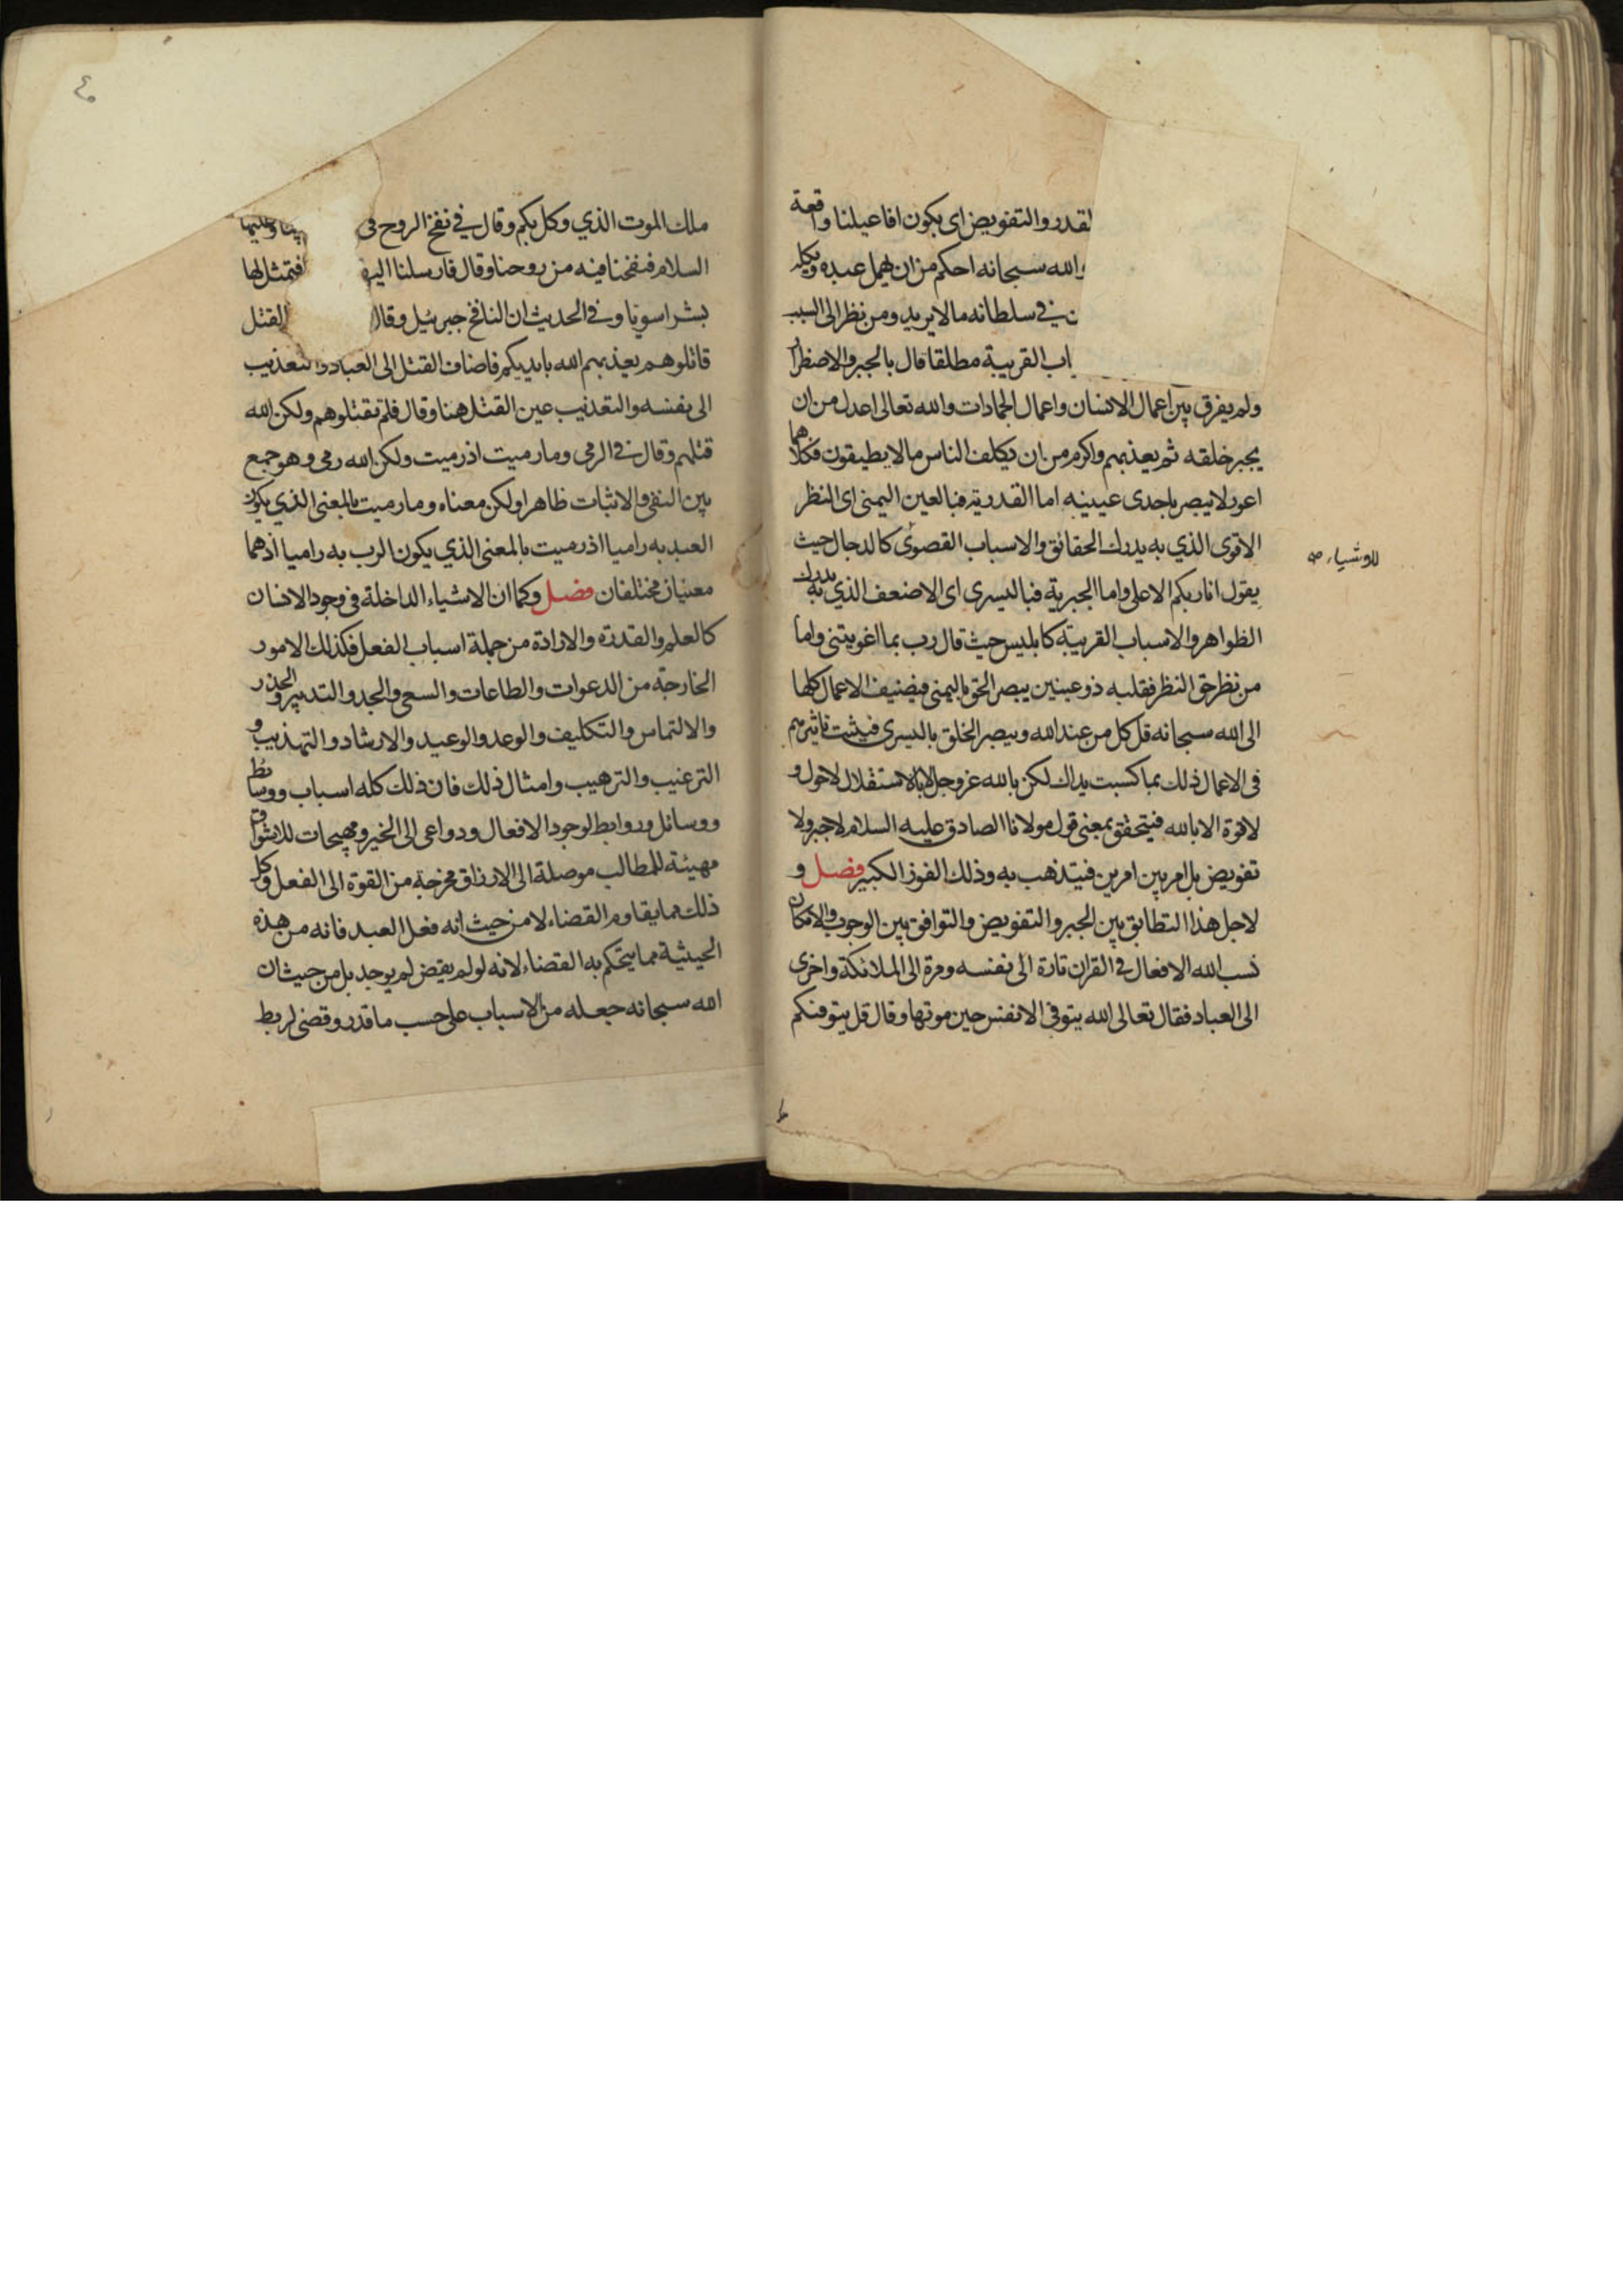 لقدر والتفويض اى يكون افاعيلنا واقعة
والله سبحانه احكم من ان يهمل عبده ويكله
فى سلطانه ما لا يريد ومن نظر الى السبب
القريبة مطلقا قال بالجبر والاضطرار
ولم يفرق بين اعمال الانسان واعمال الجمادات والله تعالى اعدل من ان
يجبر خلقه ثم يعذبهم واكرم من ان يكلف الناس ما لا يطيقون فكلاهما
اعور لا يبصر باحدى عينيه اما القدرية فبالعين اليمنى اى النظر
الاقوى الذي به يدرك الحقائق والاسباب القصوى كالدجال حيث
للاشياء صح
يقول انا ربكم الاعلى واما الجبرية فباليسرى اى الاضعف الذي به يدرك
الظواهر والاسباب القريبة كابليس حيث قال رب بما اغويتنى واما
من نظر حق النظر فقلبه ذو عينين يبصر الحق باليمنى فيضيف الاعمال كلها
الى الله سبحانه قل كل من عند الله ويبصر الخلق باليسرى فيثبت تاثيرهم
فى الاعمال ذلك بما كسبت يداك لكن بالله عز وجل لا بالاستقلال لا حول و
لا قوة الا بالله فيتحقق بمعنى قول مولانا الصادق عليه السلام لا جبر ولا
تفويض بل امر بين امرين فيتذهب به وذلك الفوز الكبير فصل و
لاجل هذا التطابق بين الجبر والتفويض والتوافق بين الوجوب والامكان
نسب الله الافعال فى القران تارة الى نفسه ومرة الى الملائكة واخرى
الى العباد فقال تعالى الله يتوفى الانفس حين موتها وقال قل يتوفيكم
٤٠
ملك الموت الذي وكل بكم وقال في نفخ الروح فى
السلام فنفخنا فيه من روحنا وقال فارسلنا اليها فتمثل لها
بشرا سويا وفى الحديث ان النافخ جبرئيل وقال القتل
قاتلوهم يعذبهم الله بايديكم فاضاف القتل الى العباد والتعذيب
الى نفسه والتعذيب عين القتل هنا وقال فلم تقتلوهم ولكن الله
قتلهم وقال فى الرمى وما رميت اذ رميت ولكن الله رمى وهو جمع
بين النفى والاثبات ظاهرا ولكن معناه وما رميت بالمعنى الذي يكون
العبد به راميا اذ رميت بالمعنى الذي يكون الرب به راميا اذ هما
معنيان مختلفان فصل وكما ان الاشياء الداخلة فى وجود الانسان
كالعلم والقدرة والارادة من جملة اسباب الفعل فكذلك الامور
الخارجة من الدعوات والطاعات والسعى والجد والتدبير والحذر
والالتماس والتكليف والوعد والوعيد والارشاد والتهذيب و
الترغيب والترهيب وامثال ذلك فان ذلك كله اسباب ووسائط
ووسائل وروابط لوجود الافعال ودواعى الى الخير ومهيجات للاشواق
مهيئة للمطالب موصلة الى الارزاق مخرجة من القوة الى الفعل وكل
ذلك مما يقاوم القضاء لا من حيث انه فعل العبد فانه من هذه
الحيثية مما يتحكم به القضاء لانه لو لم يقض لم يوجد بل من حيث ان
الله سبحانه جعله من الاسباب على حسب ما قدر وقضى لربط